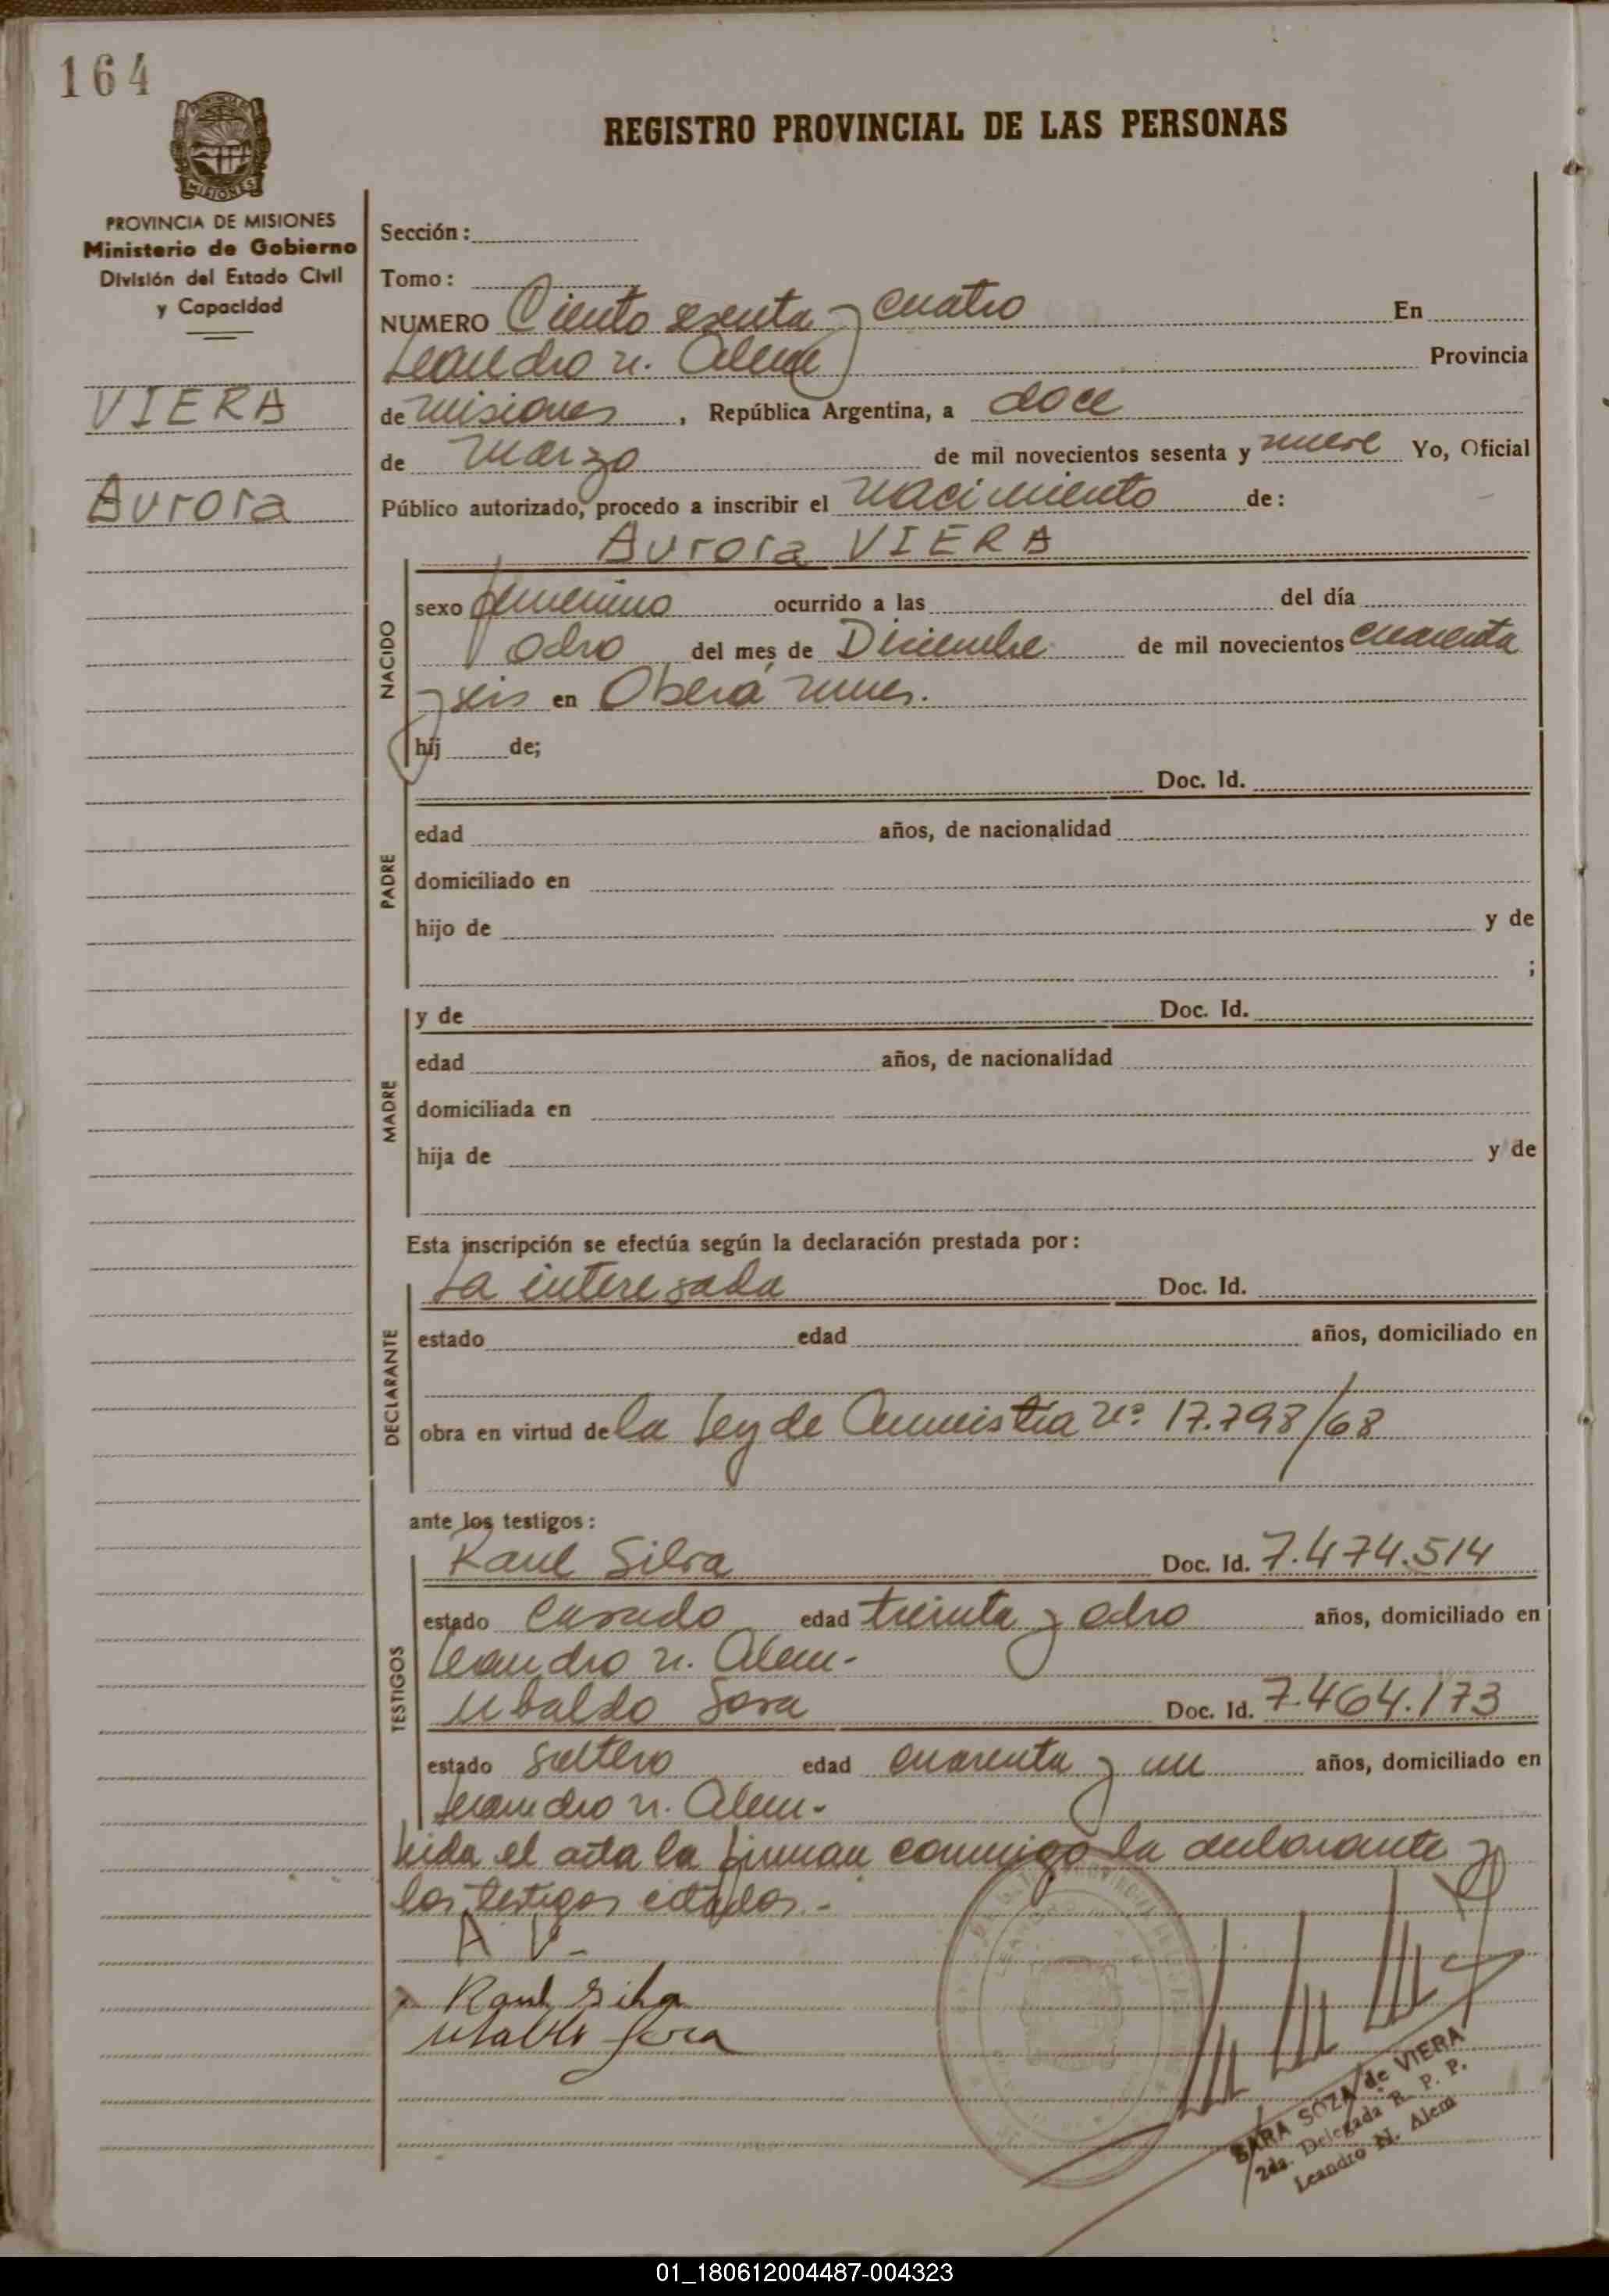 164
REGISTRO PROVINCIAL DE LAS PERSONAS
MISIONES
PROVINCIA DE MISIONES
Ministerio de Gobierno
División del Estado Civil
y Capacidad
VIERA
Aurora
Sección:
Tomo:
NUMERO Ciento sesenta y cuatro En
Leandro N. Alem Provincia
de Misiones, República Argentina, a doce
de Marzo de mil novecientos sesenta y nueve Yo, Oficial
Público autorizado, procedo a inscribir el nacimiento de:
Aurora VIERA
NACIDO
sexo femenino ocurrido a las del día
ocho del mes de Diciembre de mil novecientos cuarenta
y seis en Oberá Mnes.
hij de;
PADRE
Doc. Id.
edad años, de nacionalidad
domiciliado en
hijo de y de
;
MADRE
y de Doc. Id.
edad años, de nacionalidad
domiciliada en
hija de y de
Esta inscripción se efectúa según la declaración prestada por:
DECLARANTE
La interesada Doc. Id.
estado edad años, domiciliado en
obra en virtud de la Ley de Amnistía Nº 17.798/68
ante los testigos:
TESTIGOS
Raul Silva Doc. Id. 7.474.514
estado Casado edad treinta y ocho años, domiciliado en
Leandro N. Alem.
Ubaldo Sosa Doc. Id. 7.464.173
estado soltero edad cuarenta y un años, domiciliado en
Leandro N. Alem.
Leida el acta la firman conmigo la declarante y
los testigos citados.-
A V-
Raul Silva
Ubaldo Sosa
SARA SOZA de VIERA
2da. Delegada R. P. P.
Leandro N. Alem
01_180612004487-004323